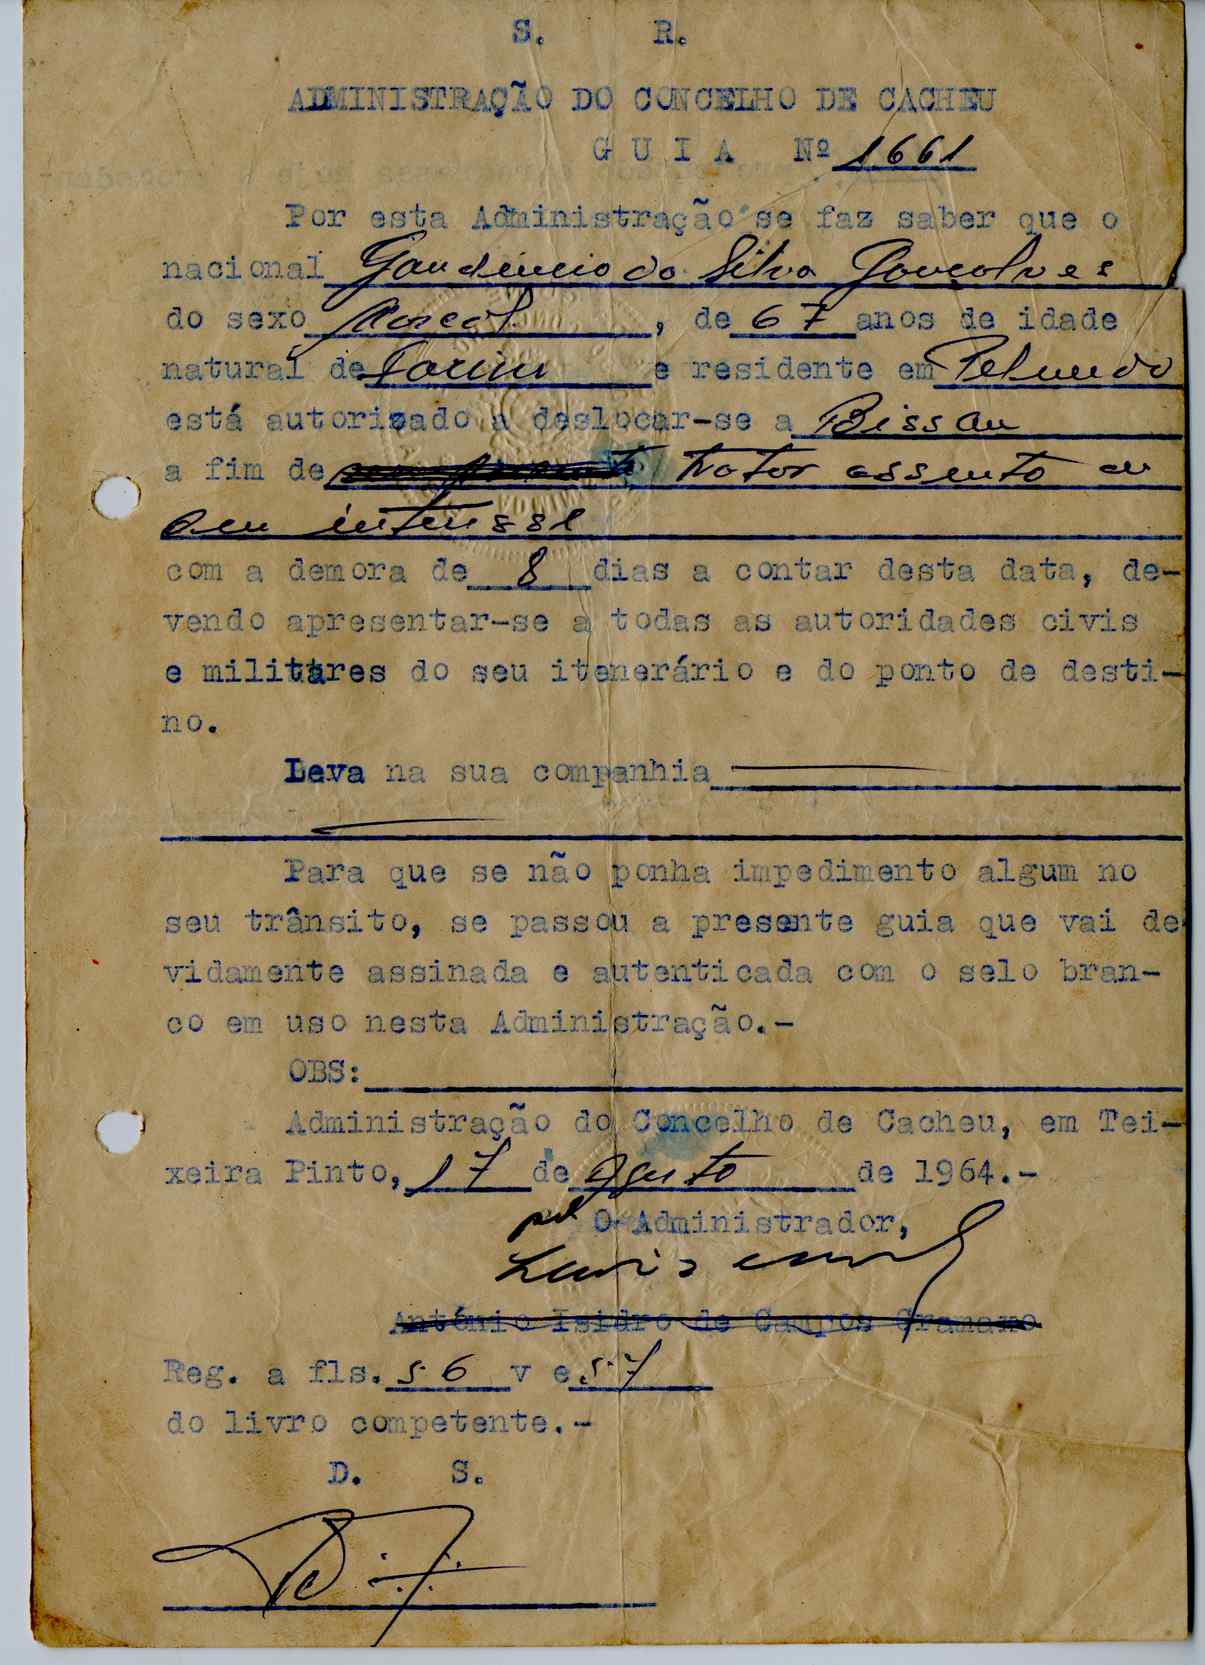 S. R.
ADMINISTRAÇÃO DO CONCELHO DE CACHEU
G U I A Nº 1661
Por esta Administração se faz saber que o
nacional Gaudêncio da Silva Gonçalves
do sexo Mascl., de 67 anos de idade
natural de Farim e residente em Pelundo
está autorizado a deslocar-se a Bissau
a fim de tratar assunto de
seu interesse
com a demora de 8 dias a contar desta data, de-
vendo apresentar-se a todas as autoridades civis
e militares do seu itenerário e do ponto de desti-
no.
Leva na sua companhia
Para que se não ponha impedimento algum no
seu trânsito, se passou a presente guia que vai de
vidamente assinada e autenticada com o selo bran-
co em uso nesta Administração.-
OBS:
Administração do Concelho de Cacheu, em Tei-
xeira Pinto, 17 de Agosto de 1964.-
pel O Administrador,
António Isidro de Campos Gramaxo
Reg. a fls. 56 v e 57
do livro competente.-
D. S.